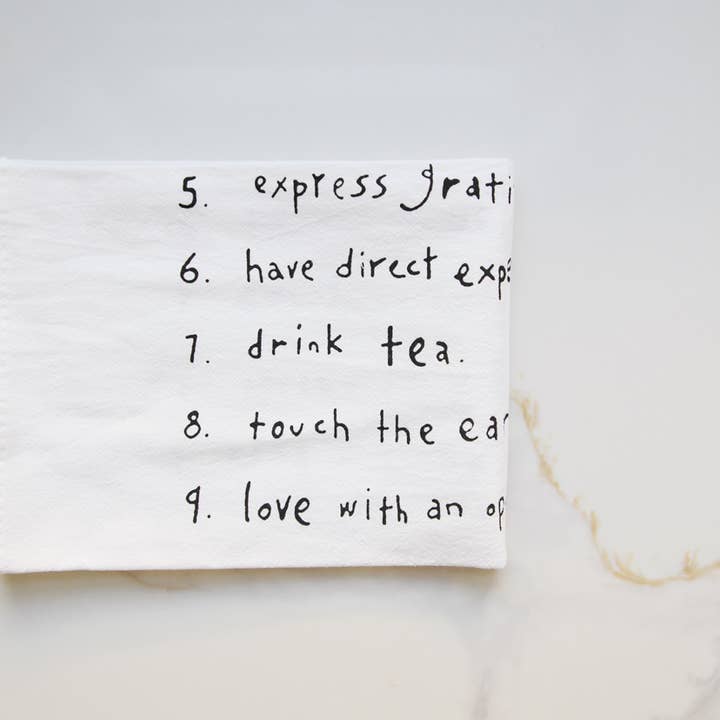 5. express grati
6. have direct exp
7. drink tea.
8. touch the ear
9. love with an op